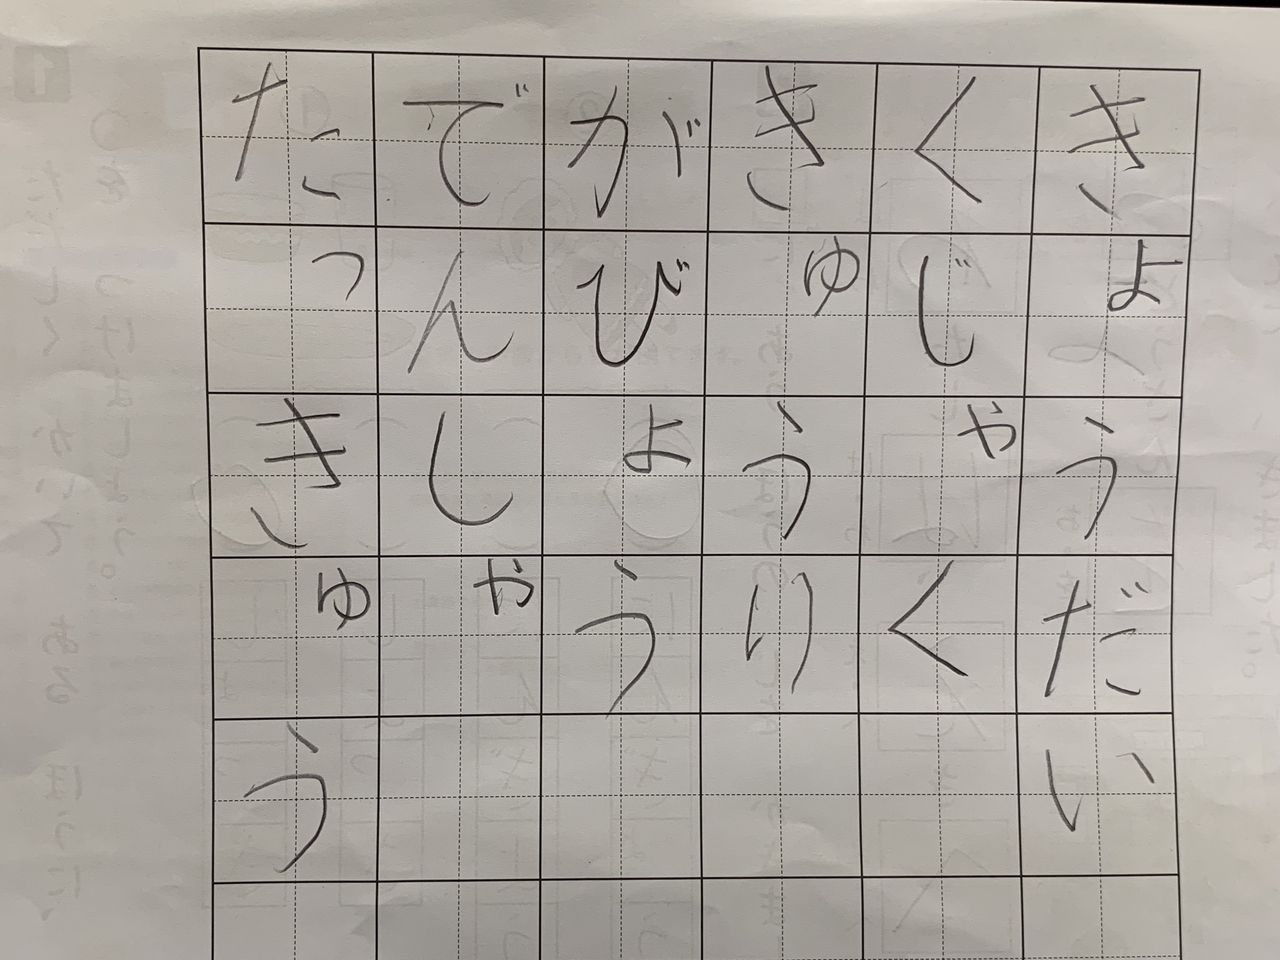 きょうだい
くじゃく
きゅうり
がびょう
でんしゃ
たっきゅう